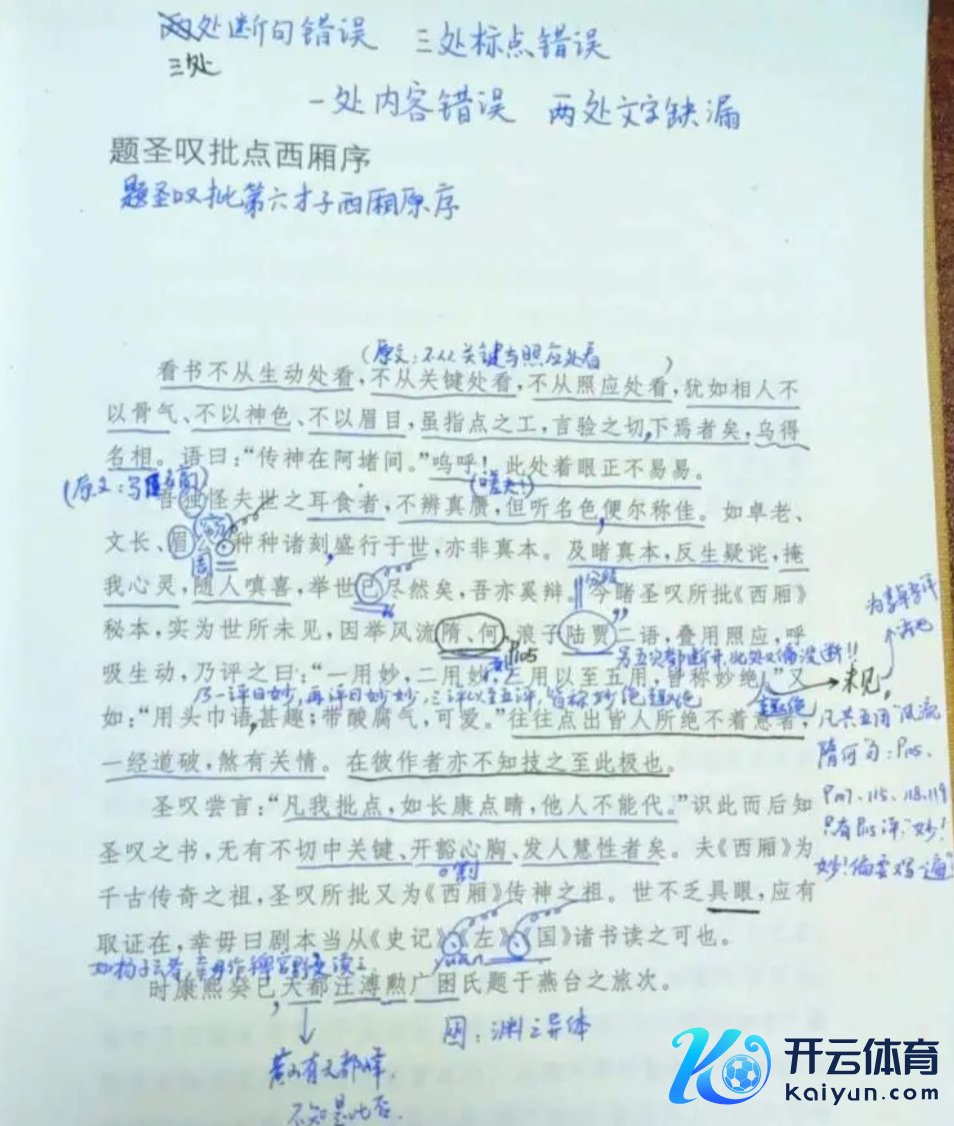 两处断句错误 三处标点错误
三处
一处内容错误 两处文字缺漏
题圣叹批点西厢序
题圣叹批第六才子西厢原序
(原文:不从关键与照应处看)
看书不从生动处看,不从关键处看,不从照应处看,犹如相人不
以骨气、不以神色、不以眉目,虽指点之工,言验之切,下焉者矣,乌得
名相。语曰:“传神在阿堵间。”呜呼!此处着眼正不易易。
吾独怪夫世之耳食者,不辨真赝,但听名色,便尔称佳。如卓老、
文长、眉公种种诸刻,盛行于世,亦非真本。及睹真本,反生疑诧,掩
我心灵,随人嗔喜,举世已尽然矣,吾亦奚辩。今睹圣叹所批《西厢》
秘本,实为世所未见,因举风流隋、何,浪子陆贾二语,叠用照应,呼
另五只都断开,此处又偏没断!!
吸生动,乃评之曰:“一用妙,二用妙,三用以至五用,皆称妙绝。”又
乃一评曰妙,再评曰妙妙,三评以至五评,皆称妙绝趣绝
未见。
如:“用头巾语,甚趣;带酸腐气,可爱。”往往点出皆人所绝不着意者,
一经道破,煞有关情。在彼作者亦不知技之至此极也。
凡共五用“风流
隋何”句:P05.
P107、115、118、119
只有P115评:“妙!
妙!偏要写一遍”
圣叹尝言:“凡我批点,如长康点睛,他人不能代。”识此而后知
圣叹之书,无有不切中关键、开豁心胸、发人慧性者矣。夫《西厢》为
千古传奇之祖,圣叹所批又为《西厢》传神之祖。世不乏具眼,应有
取证在,幸毋曰剧本当从《史记》《左》《国》诸书读之可也。
时康熙癸巳天都汪溥勲广囦氏题于燕台之旅次。
囦:渊之异体
黄山有天都峰
不知是此否.
开云体育
kaiyun.com